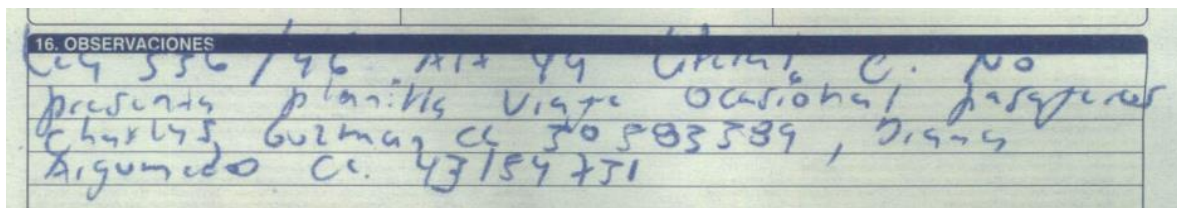 16. OBSERVACIONES
Ley 336/96 Art 49 Literal C. No
presenta planilla viaje ocasional pasajeros
Charlys Guzman cc 30583389, Diana
Argumedo Cc. 43154731